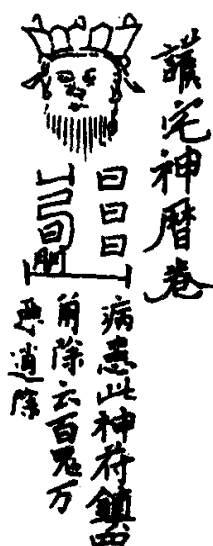 護宅神曆卷
日日日
病患此神符鎮
前除云百鬼万
悉消除